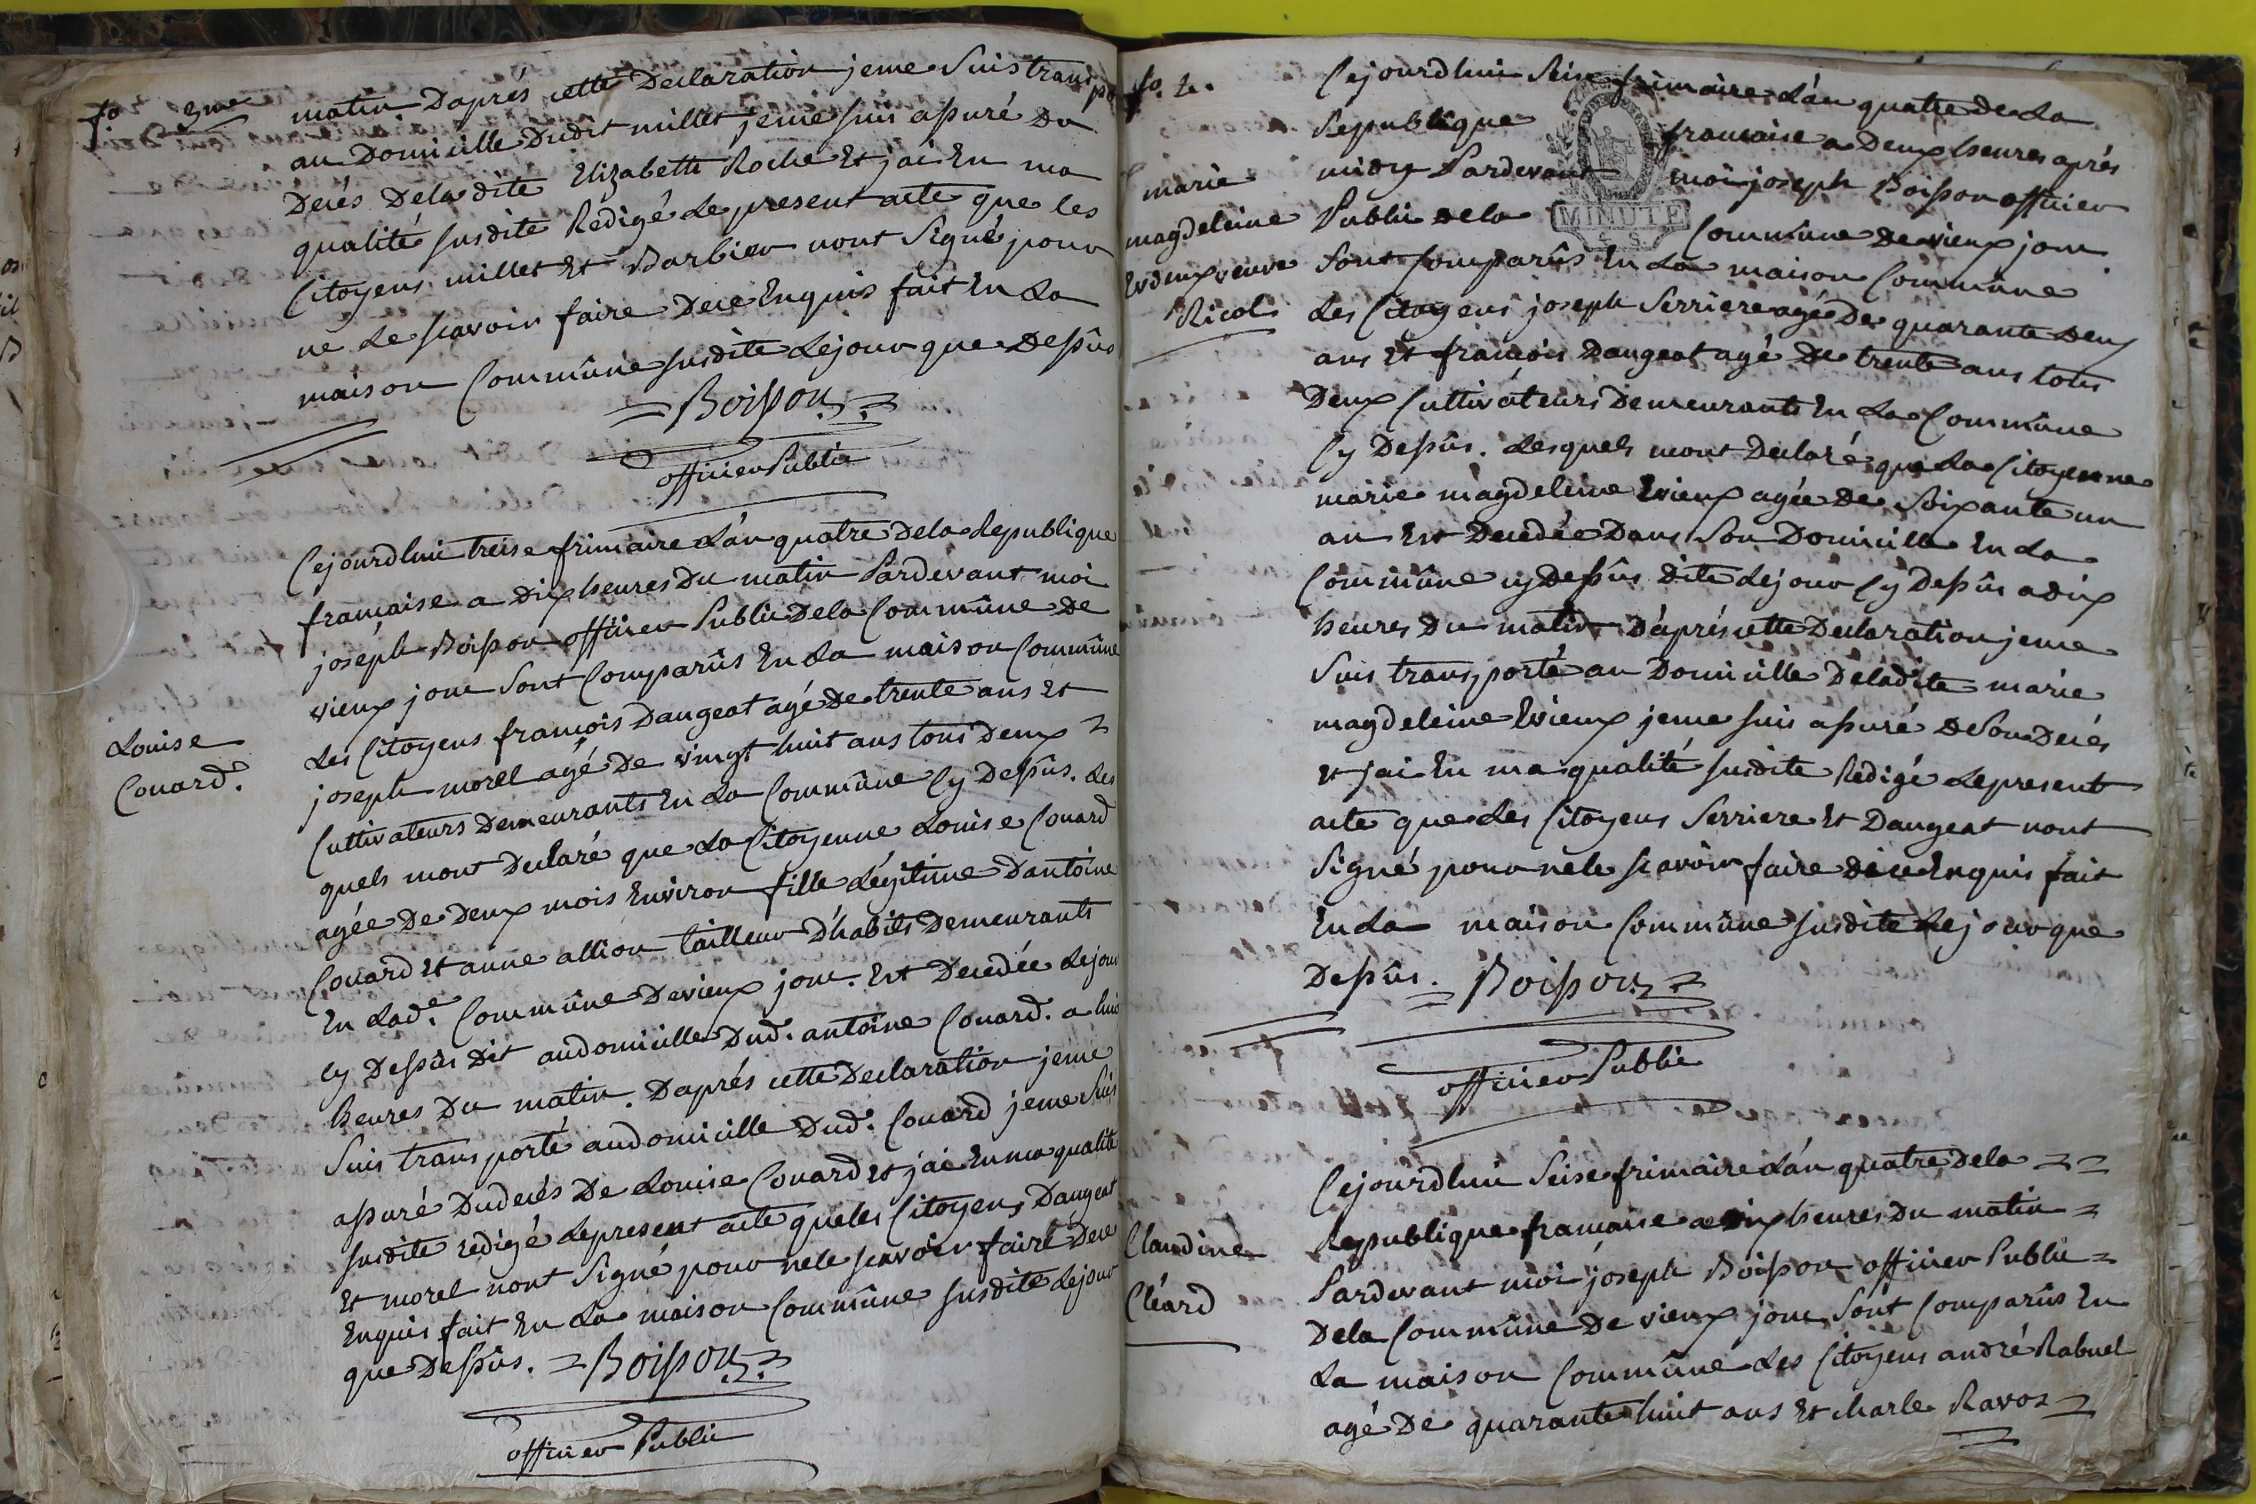 fo 3me
matin Daprés cette Declaration jeme Suis transpo
au Domicille Dudit millet jeme suis assuré du
Decés Deladite Elizabette Roche Et jai En ma
qualité susdite Rédigé Le present acte que les
Citoyens millet Et Barbier nont Signé pour
ne Le scavoir faire Dece Enquis fait En La
maison Commûne susdite Lejour que Dessûs
Boisson
officier Public
Cejourdhui treise frimaire L'an quatre Dela Republique
francaise a dix heures Du matin Pardevant moi
joséph Boisson officier Public Dela Commûne de
vieux jonc Sont Comparûs En La maison Commûne
Les Citoyens francois Dangeat agé De trente ans Et
joseph morel agé De vingt huit ans tous Deux
Louise
Couard.
Cultivateurs Demeurants En La Commûne Cy Dessûs. Les
quels mont Declaré que La Citoyenne Louise Couard
agée De Deux mois Environ fille Légitime Dantoine
Couard Et anne allion tailleur D'habits Demeurants
En Lade. Commûne De vieux jonc. Est Decedée Lejour
Cy Dessûs Dit audomicille Dud. antoine Couard. a huit
heures Du matin. Daprés cette Declaration jeme
Suis transporté audomicille Dud. Couard jeme Suis
assuré Dudecés De Louise Couard Et jai Enma qualité
susdite redigé Lepresent acte queles Citoyens Dangeat
Et morel nont Signé pour nele scavoir faire Dece
Enquis fait En La maison Commûne susdite Lejour
que Dessûs. Boisson
officier Public
fo. 4.
Cejourdhui Seise frimaire L'an quatre De La
Republique francaise a Deux heures aprés
midy Pardevant moi joseph Boisson officier
Public Dela Commûne De vieux jonc
MINUTE
marie
magdeleine
Evieux veuve
Nicol
Sont Comparûs En La maison Commûne
Les Citoyens joseph Serriere agé De quarante Deux
ans Et francois Dangeat agé De trente ans tous
Deux Cultivateurs Demeurants En La Commûne
Cy Dessûs. Lesquels mont Declaré que La Citoyenne
marie magdeleine Evieux agée De Soixante un
an Est Decedée Dans Son Domicille En La
Commûne cy Dessûs dite Lejour Cy Dessûs a dix
heures Du matin D'aprés cette Declaration jeme
Suis transporté au Domicille Deladite marie
magdeleine Evieux jeme suis assuré De Son Decés
Et jai En ma qualité susdite Redigé Lepresent
acte que Les Citoyens Serriere Et Dangeat nont
Signé pour nele scavoir faire de ce Enquis fait
En La maison Commûne susdite Lejour que
Dessûs. Boisson
officier Public
Cejourdhui Seise frimaire L'an quatre Dela
Republique francaise a dix heures Du matin
Claudine
Cléard
Pardevant moi joseph Boisson officier Public
Dela Commûne De vieux jonc Sont Comparûs En
La maison Commûne Les Citoyens andré Rabuel
agé De quarante huit ans Et Charle Ravos